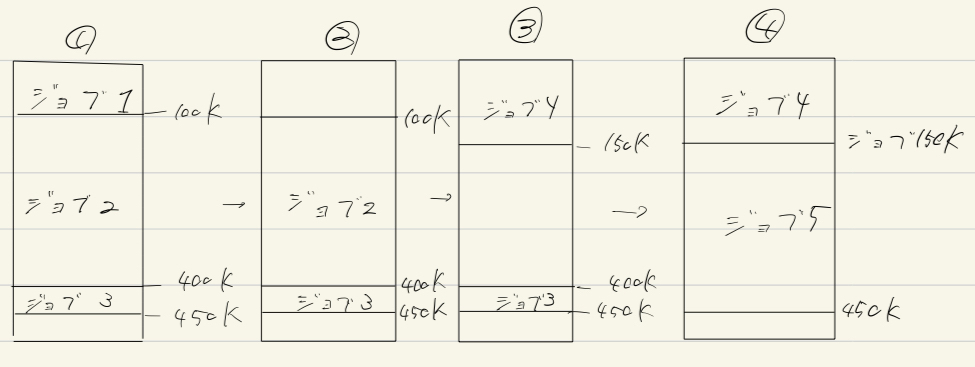 ①
ジョブ1
100K
ジョブ2
→
400K
ジョブ3
450K
②
100K
ジョブ2
→
400K
ジョブ3
450K
③
ジョブ4
150K
→
400K
ジョブ3
450K
④
ジョブ4
ジョブ150K
ジョブ5
450K